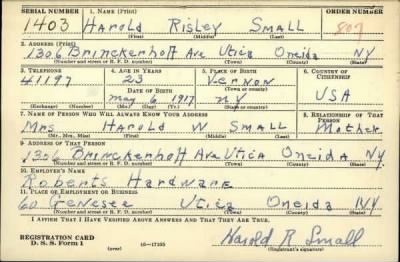 SERIAL NUMBER 1. NAME (Print) ORDER NUMBER
1403 Harold Risley Small 809
(First) (Middle) (Last)
2. ADDRESS (Print)
1306 Brinckerhoff Ave Utica Oneida NY
(Number and street or R. F. D. number) (Town) (County) (State)
3. TELEPHONE 4. AGE IN YEARS 5. PLACE OF BIRTH 6. COUNTRY OF CITIZENSHIP
41197 23 Vernon
(Town or county)
DATE OF BIRTH
May 6 1917 NY USA
(Exchange) (Number) (Mo.) (Day) (Yr.) (State or country)
7. NAME OF PERSON WHO WILL ALWAYS KNOW YOUR ADDRESS 8. RELATIONSHIP OF THAT PERSON
Mrs Harold W Small Mother
(Mr., Mrs., Miss) (First) (Middle) (Last)
9. ADDRESS OF THAT PERSON
1306 Brinckerhoff Ave Utica Oneida NY.
(Number and street or R. F. D. number) (Town) (County) (State)
10. EMPLOYER'S NAME
Roberts Hardware
11. PLACE OF EMPLOYMENT OR BUSINESS
60 Genesee Utica Oneida NY.
(Number and street or R. F. D. number) (Town) (County) (State)
I AFFIRM THAT I HAVE VERIFIED ABOVE ANSWERS AND THAT THEY ARE TRUE.
REGISTRATION CARD
D. S. S. Form 1 (over) 16—17105 Harold R Small
(Registrant's signature)